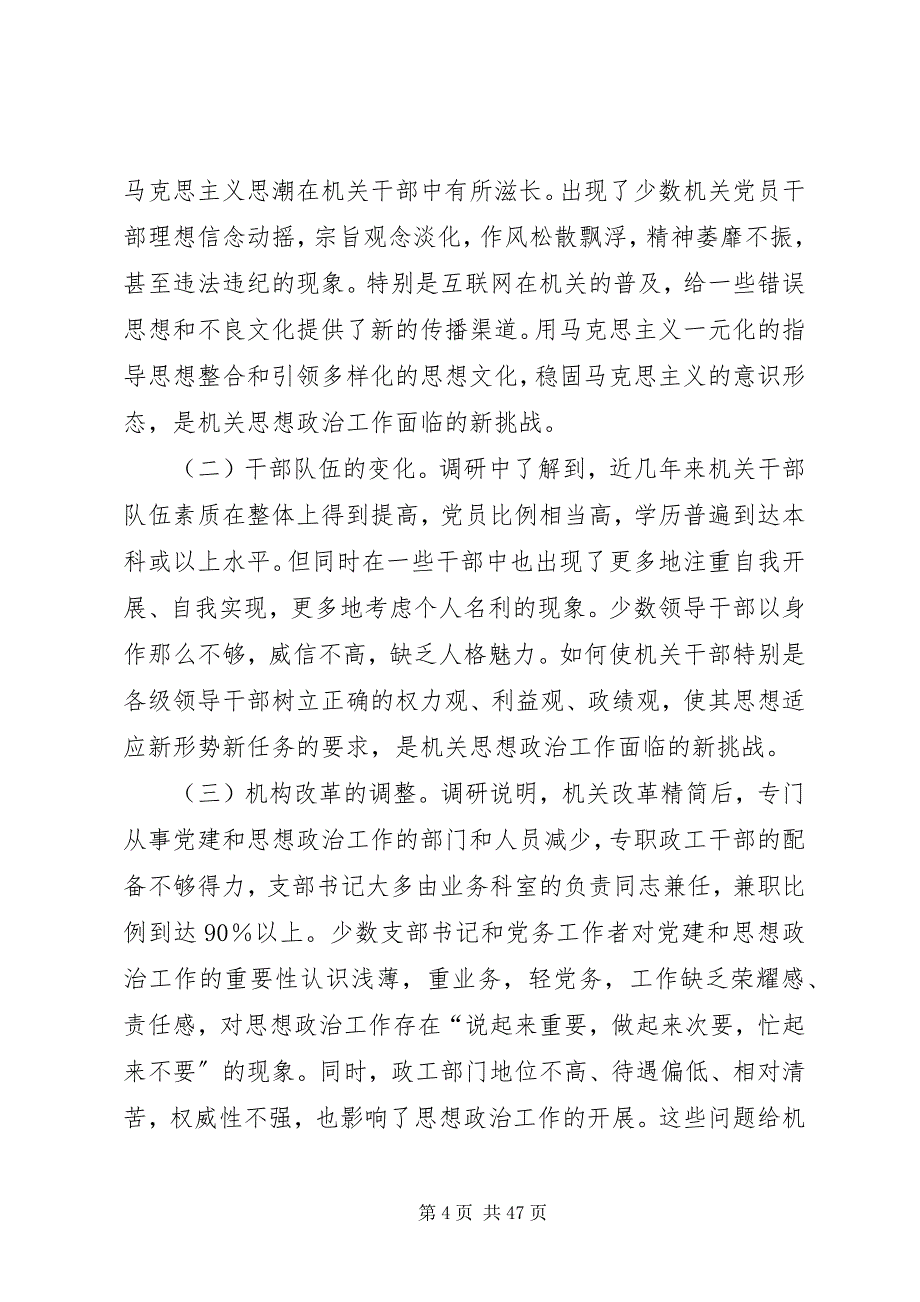 马克思主义思潮在机关干部中有所滋长。出现了少数机关党员干
部理想信念动摇，宗旨观念淡化，作风松散飘浮，精神萎靡不振，
甚至违法违纪的现象。特别是互联网在机关的普及，给一些错误
思想和不良文化提供了新的传播渠道。用马克思主义一元化的指
导思想整合和引领多样化的思想文化，稳固马克思主义的意识形
态，是机关思想政治工作面临的新挑战。
（二）干部队伍的变化。调研中了解到，近几年来机关干部
队伍素质在整体上得到提高，党员比例相当高，学历普遍到达本
科或以上水平。但同时在一些干部中也出现了更多地注重自我开
展、自我实现，更多地考虑个人名利的现象。少数领导干部以身
作那么不够，威信不高，缺乏人格魅力。如何使机关干部特别是
各级领导干部树立正确的权力观、利益观、政绩观，使其思想适
应新形势新任务的要求，是机关思想政治工作面临的新挑战。
（三）机构改革的调整。调研说明，机关改革精简后，专门
从事党建和思想政治工作的部门和人员减少，专职政工干部的配
备不够得力，支部书记大多由业务科室的负责同志兼任，兼职比
例到达 90％以上。少数支部书记和党务工作者对党建和思想政
治工作的重要性认识浅薄，重业务，轻党务，工作缺乏荣耀感、
责任感，对思想政治工作存在“说起来重要，做起来次要，忙起
来不要〞的现象。同时，政工部门地位不高、待遇偏低、相对清
苦，权威性不强，也影响了思想政治工作的开展。这些问题给机
第 4 页 共 47 页